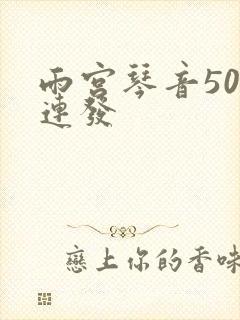 雨宮琴音50
連發
戀上你的香味